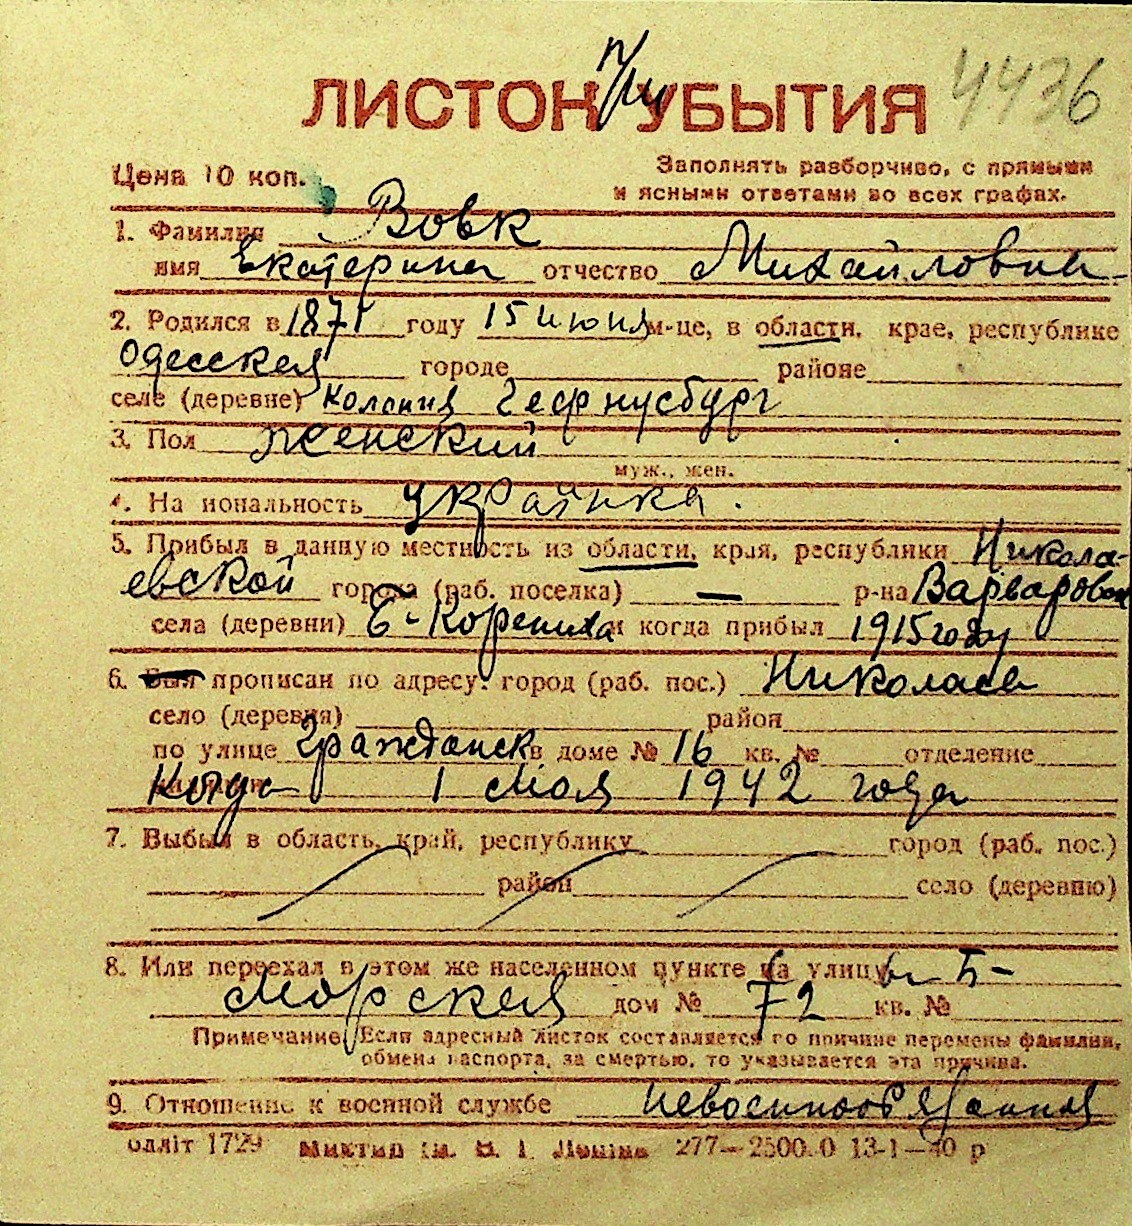 ЛИСТОК УБЫТИЯ 4436
Цена 10 коп.
Заполнять разборчиво, с прямыми
и ясными ответами во всех графах.
1. Фамилия Вовк
имя Екатерина отчество Михайловна
2. Родился в 1871 году 15 июня м-це, в области, крае, республике
Одесская городе районе
селе (деревне) колония
3. Пол женский
муж., жен.
4. Национальность украинка.
5. Прибыл в данную местность из области, края, республики Никола-
евской города (раб. поселка) — р-на Варваровск
села (деревни) Б-Корениха и когда прибыл 1915 году
6. Был прописан по адресу: город (раб. пос.) Николаев
село (деревня) район
по улице Гражданск в доме № 16 кв. № отделение
1 мая 1942 года
7. Выбыл в область, край, республику город (раб. пос.)
район село (деревню)
8. Или переехал в этом же населенном пункте на улицу Б-
Морская дом № 72 кв. №
Примечание Если адресный листок составляется по причине перемены фамилии,
обмена паспорта, за смертью, то указывается эта причина.
9. Отношение к военной службе невоеннообязанная
Одліт 1729 277—2500.0 13-1—40 р